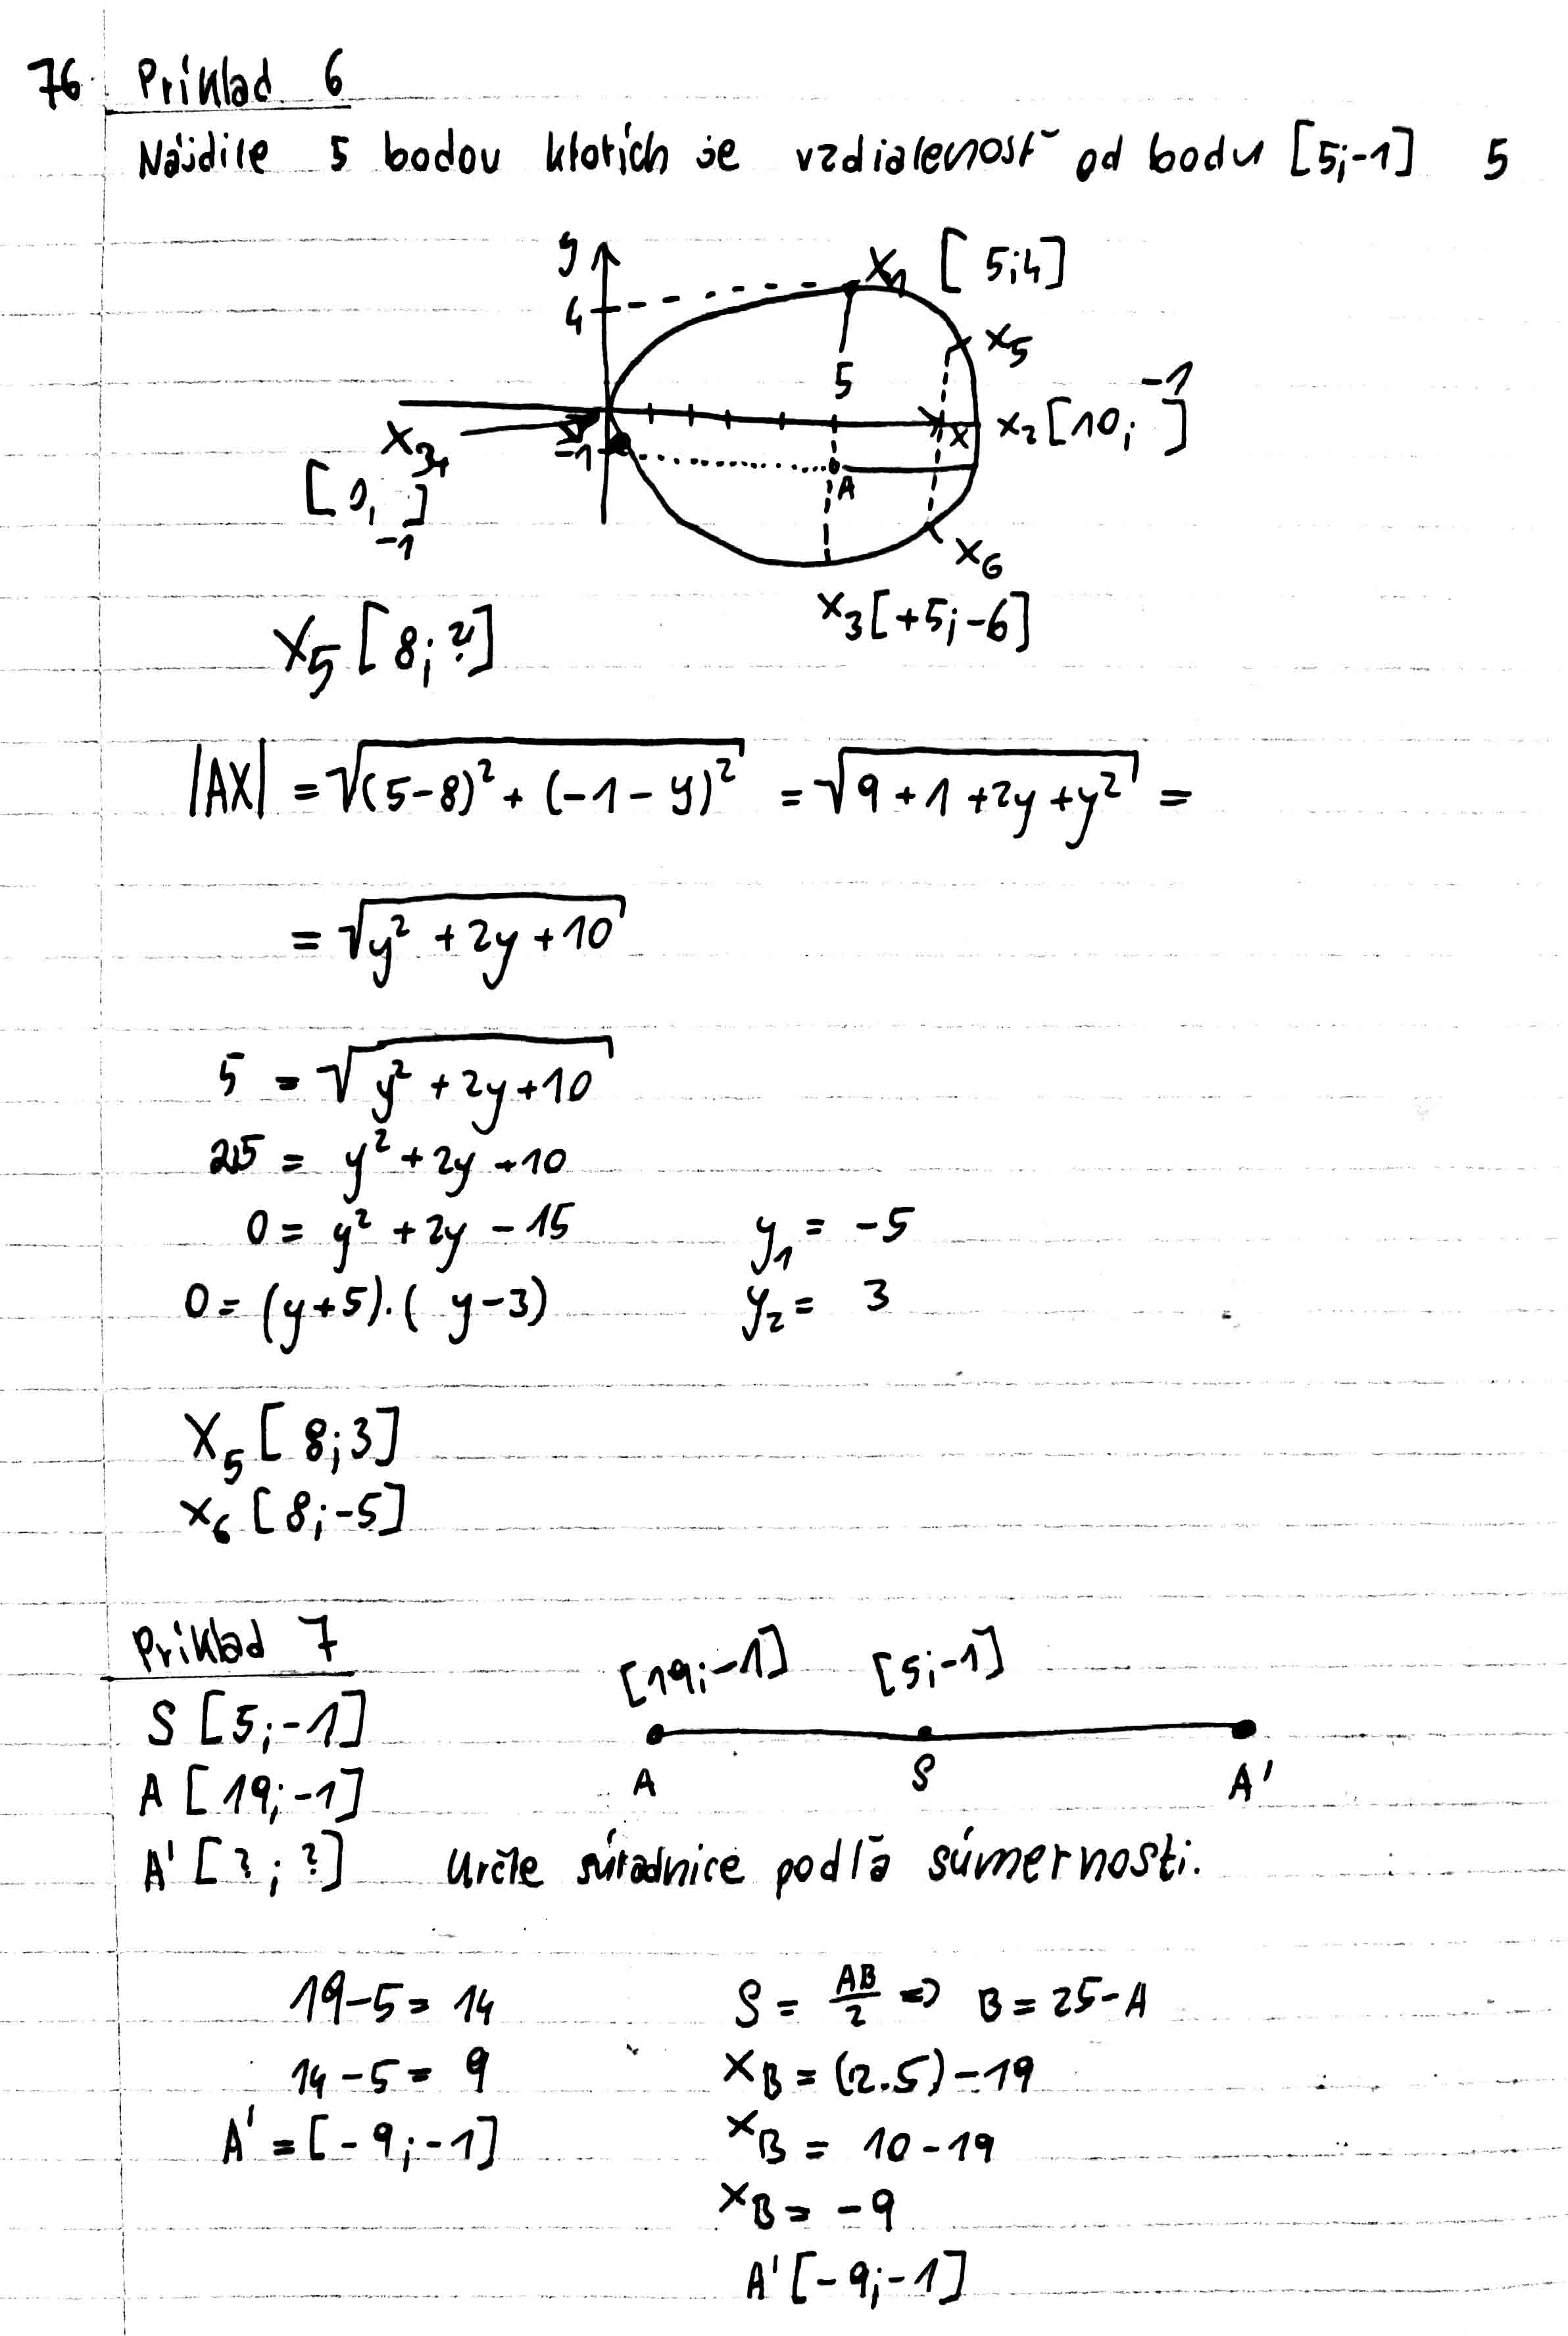 76 Príklad 6
Nájdite 5 bodov ktorích je vzdialenosť od bodu [5;-1] 5
y
X₁ [5;4]
4
X₅
5
-1
X₂[10; ]
X₃,
-1
x
A
[0, ]
-1
X₆
X₃[+5;-6]
X₅ [8;?]
|AX| = √((5-8)² + (-1-y)²) = √(9+1+2y+y²) =
= √(y² +2y+10)
5 = √(y² +2y+10)
25 = y² +2y +10
0 = y² +2y -15 y₁ = -5
0 = (y+5).( y-3) y₂ = 3
X₅ [8;3]
X₆ [8;-5]
Príklad 7
[19;-1] [5;-1]
S [5;-1]
A S A'
A [19;-1]
A' [?;?] Určte súradnice podľa súmernosti.
19-5= 14 S = AB/2 => B = 2S-A
14-5= 9 X_B = (2.5)-19
A' = [-9;-1] X_B = 10-19
X_B = -9
A' [-9;-1]